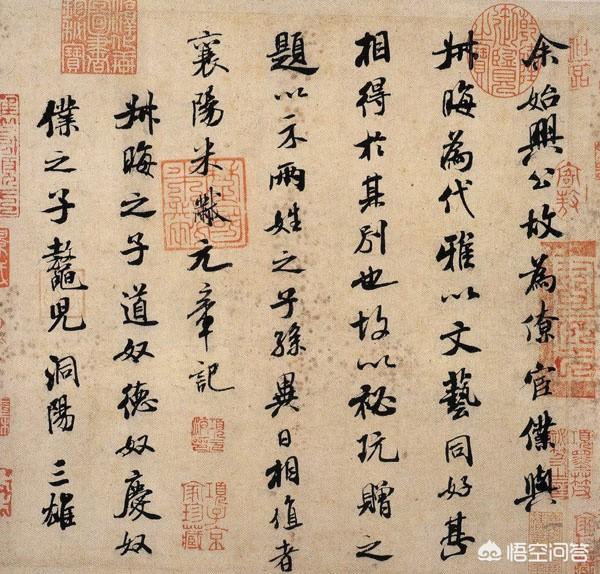 余始興公故為僚宦僕與
叔晦為代雅以文藝同好甚
相得於其別也故以秘玩贈之
題以示兩姓之子孫異日相值者
襄陽米黻元章記
叔晦之子道奴德奴慶奴
僕之子鰲兒洞陽三雄
項子京家珍藏
悟空问答